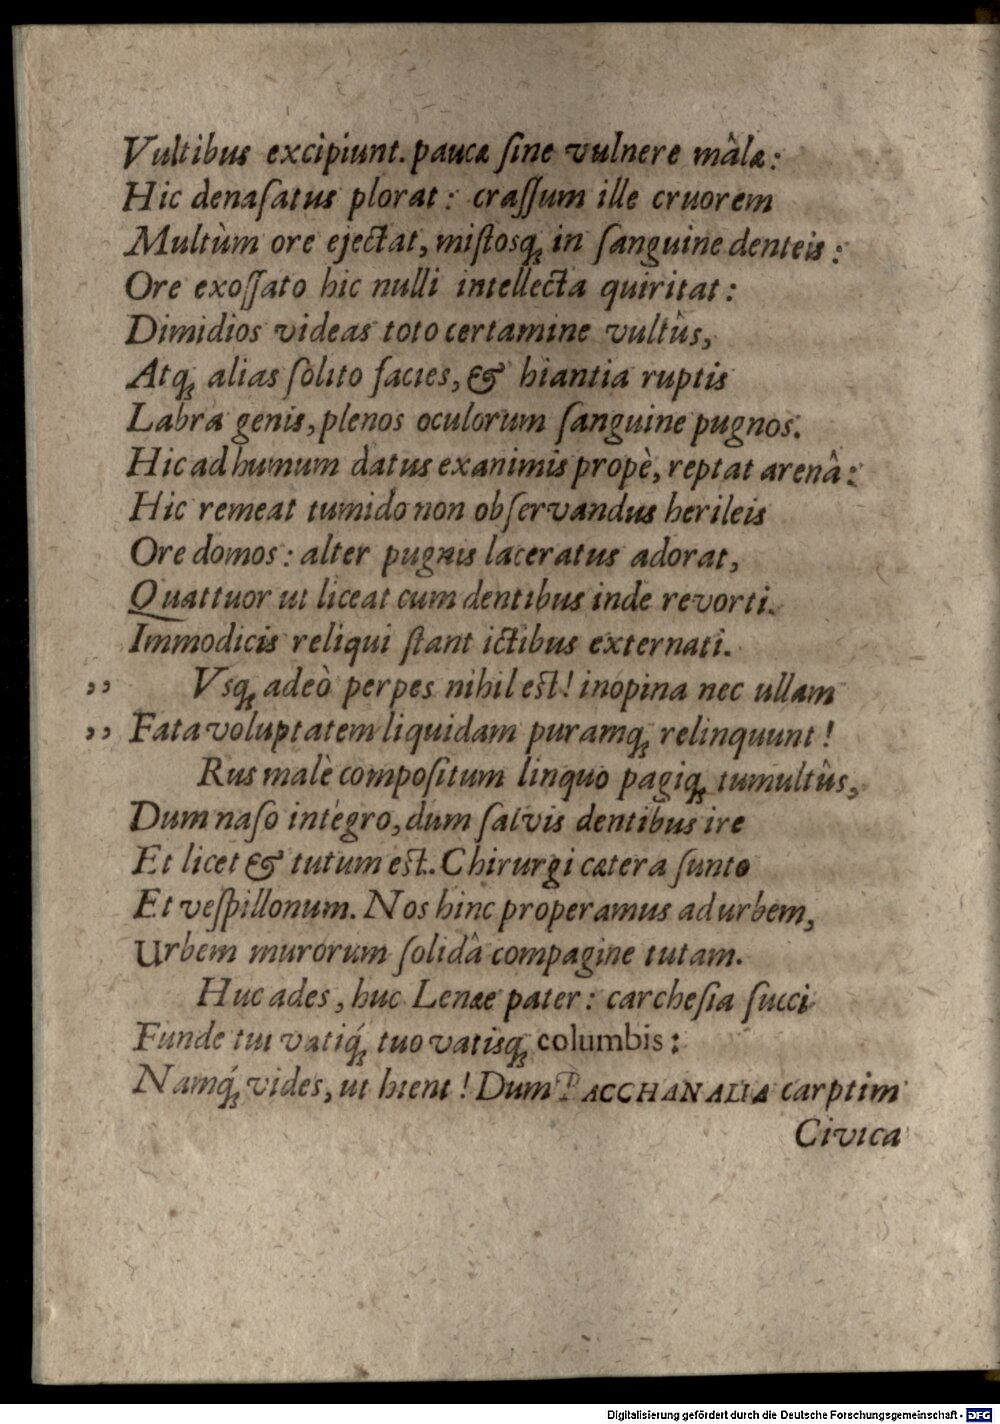 Vultibus excipiunt. paucæ ſine vulnere mâlæ:
Hic denaſatus plorat: craſſum ille cruorem
Multùm ore ejectat, miſtosq́; in ſanguine denteis:
Ore exoſſato hic nulli intellecta quiritat:
Dimidios videas toto certamine vultûs,
Atq; alias ſolito facies, & hiantia ruptis
Labra genis, plenos oculorum ſanguine pugnos.
Hic ad humum datus exanimis propè, reptat arenâ:
Hic remeat tumido non obſervandus herileis
Ore domos: alter pugnis laceratus adorat,
Quattuor ut liceat cum dentibus inde revorti.
Immodicis reliqui ſtant ictibus externati.
,, Vsq; adeò perpes nihil est! inopina nec ullam
,, Fata voluptatem liquidam puramq; relinquunt!
Rus malè compoſitum linquo pagiq; tumultûs,
Dum naſo integro, dum ſalvis dentibus ire
Et licet & tutum est. Chirurgi cætera ſunto
Et veſpillonum. Nos hinc properamus ad urbem,
Urbem murorum ſolidâ compagine tutam.
Huc ades, huc Lenæe pater: carcheſia ſucci
Funde tui vatiq́; tuo vatisq; columbis:
Namq́; vides, ut hient! Dum BACCHANALIA carptim
Civica
Digitalisierung gefördert durch die Deutsche Forschungsgemeinschaft - DFG